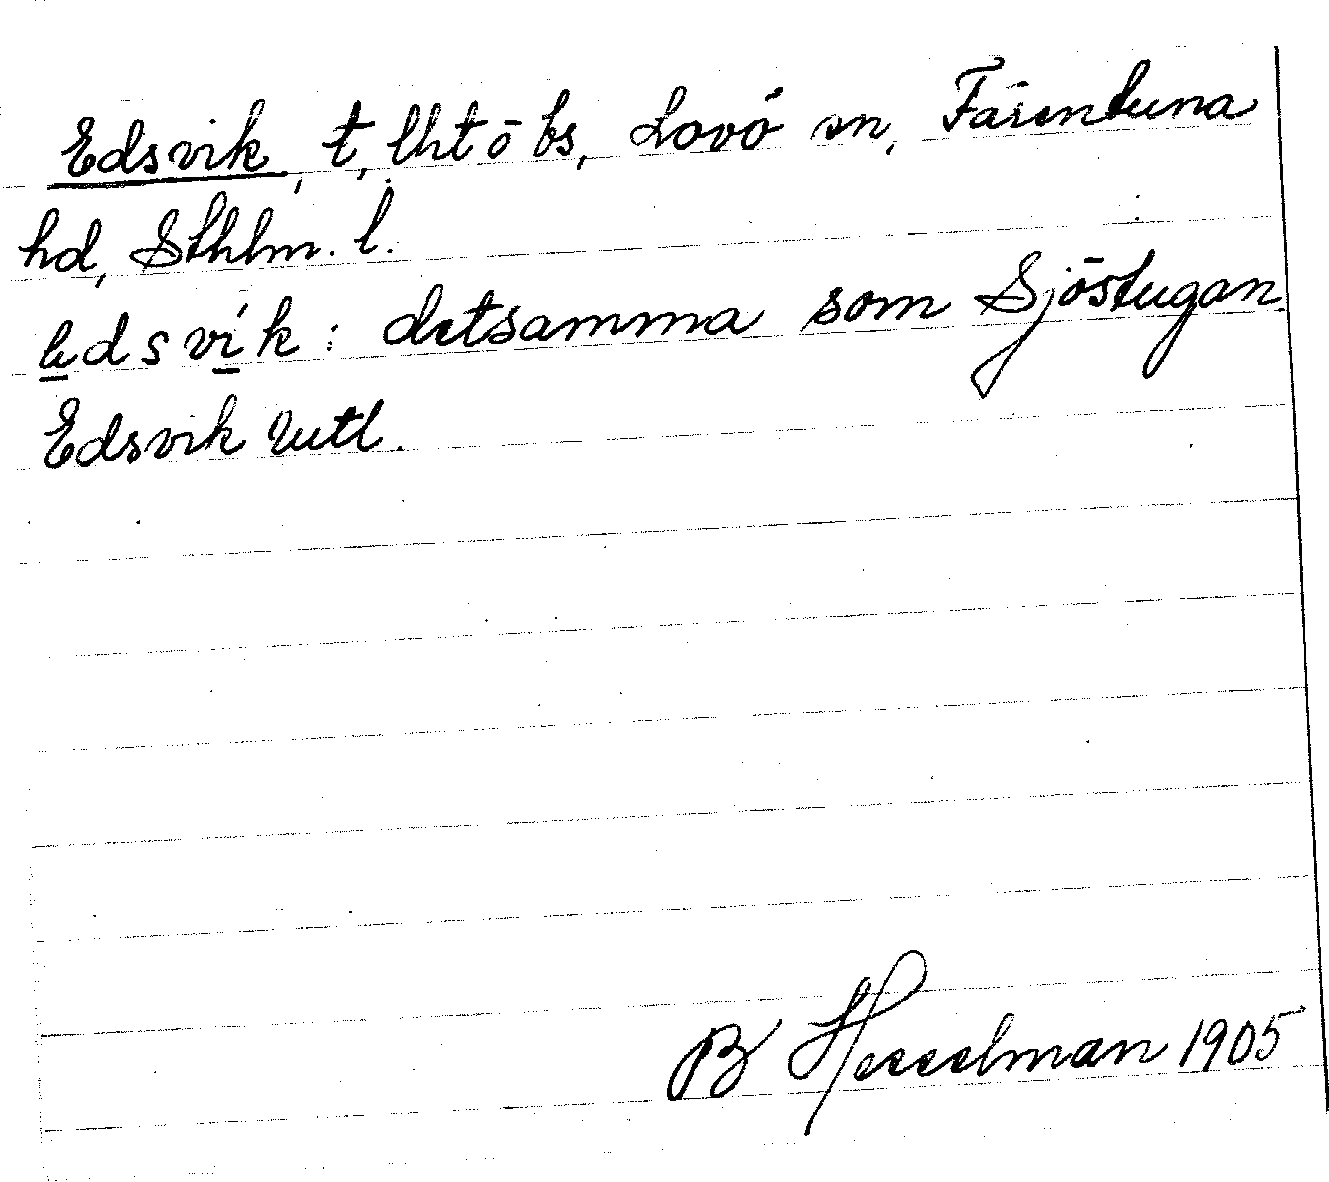 Edsvik, t, lht o bs, Lovö sn, Färentuna
hd, Sthlm. l.
edsvík: detsamma som Sjöstugan
Edsvik Rutl.
B Hesselman 1905